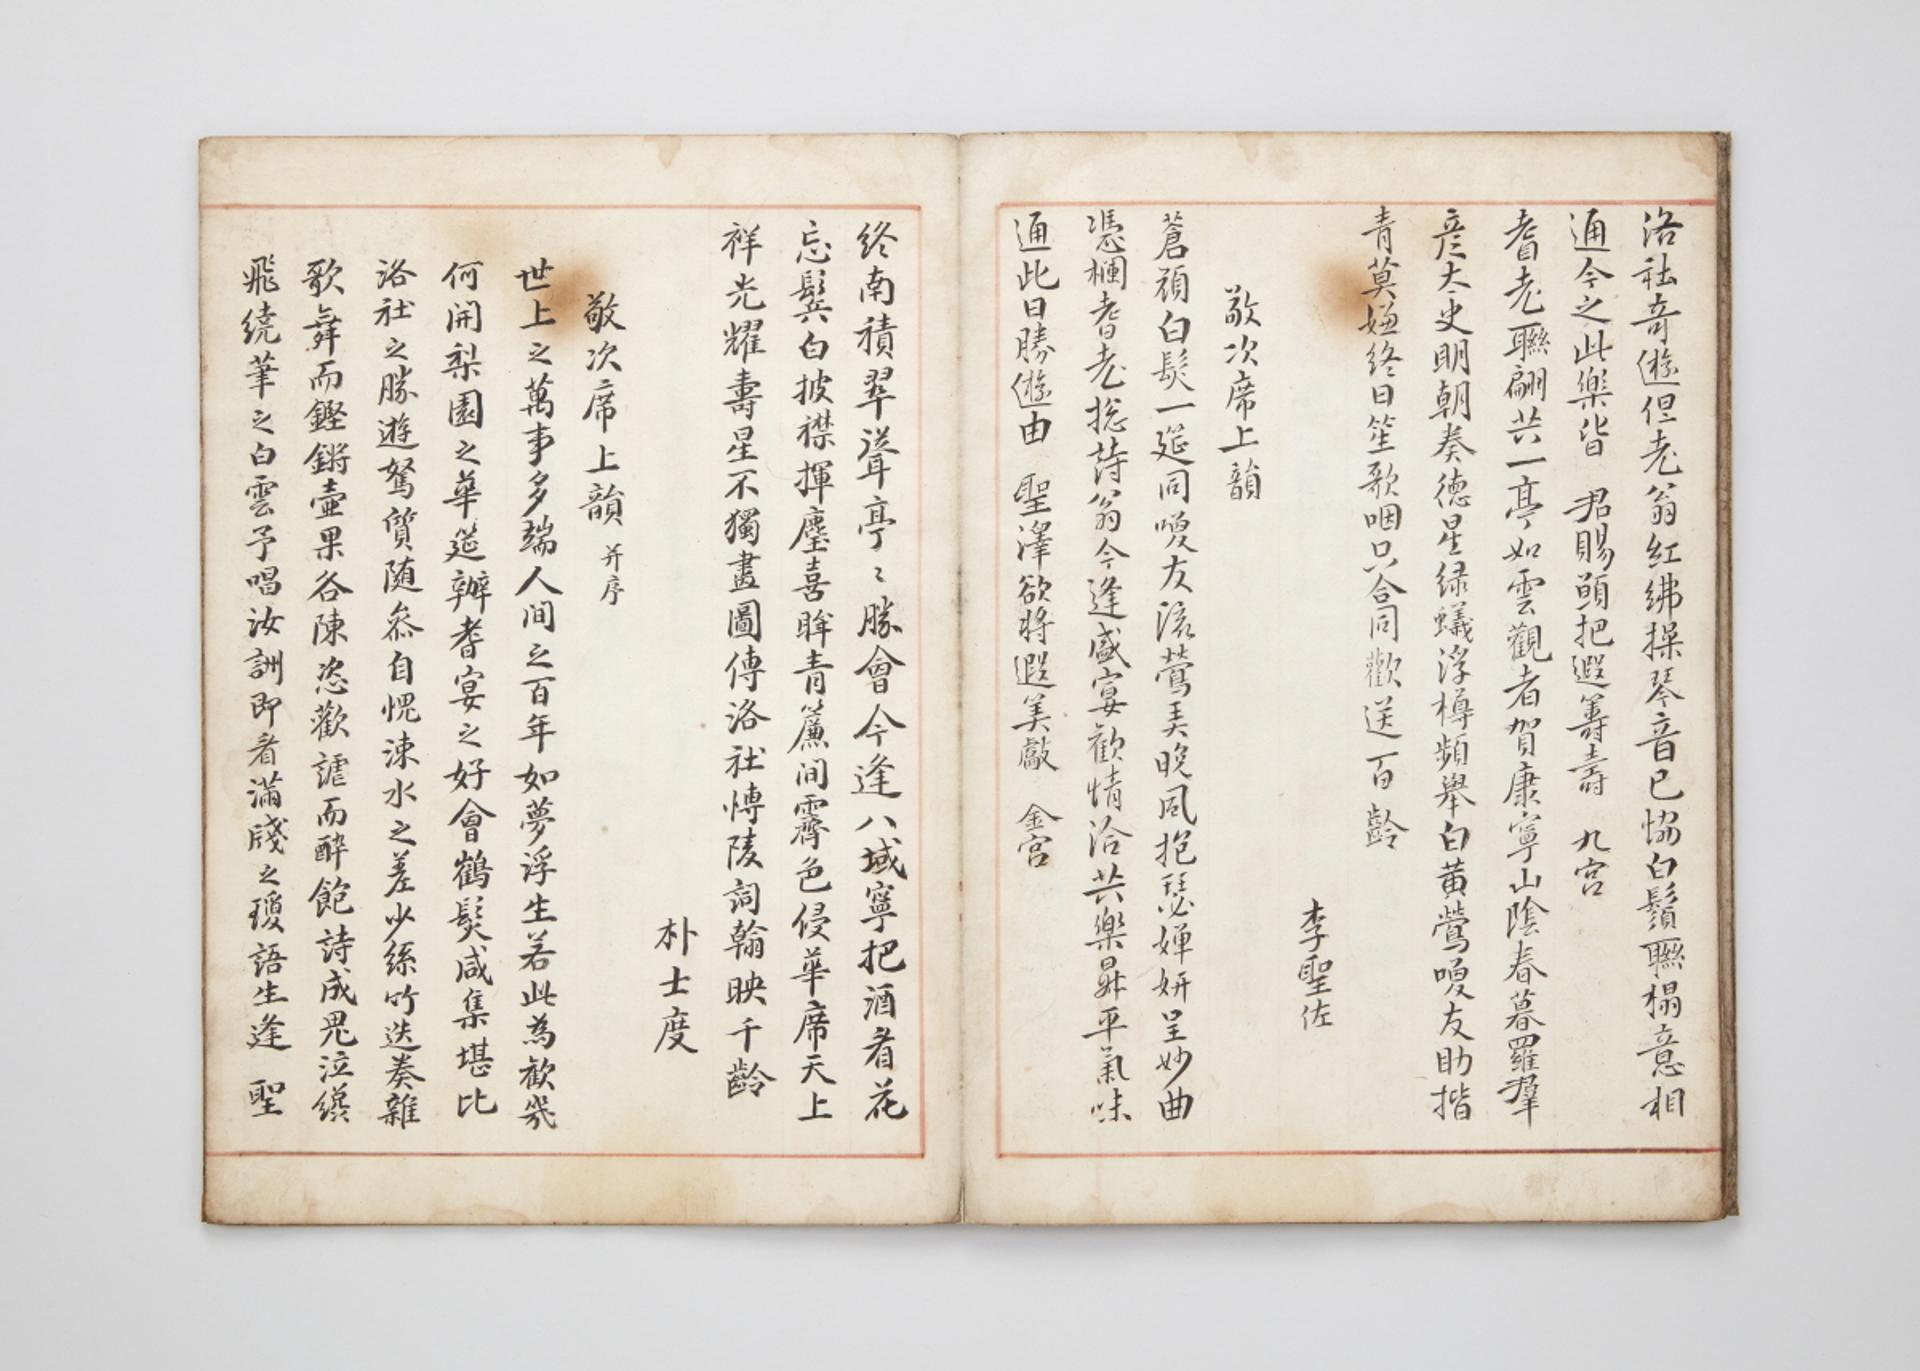 洛社奇遊但老翁紅紼操琴音已恊白鬚聯榻意相
通今之此樂皆 君賜頭把遐籌壽 九宮
耆老聯翩共一亭如雲觀者賀康寧山陰春暮羅羣
彦太史明朝奏德星緑蟻浮樽頻舉白黃鶯喚友助揩
青莫嫌終日笙歌咽只合同歡送百齡
李聖佐
敬次席上韻
蒼顔白髮一筵同喚友流鶯美晚風抱瑟嬋妍呈妙曲
憑欄耆老揔詩翁今逢盛宴歡情洽共樂昇平氣味
通此日勝遊由 聖澤欲將遐美獻 金宮
終南積翠聳亭〻勝會今逢八域寧把酒看花
忘鬓白披襟揮麈喜眸青簾间霽色侵華席天上
祥光耀壽星不獨畫圖傳洛社愽陵詞翰映千齡
朴士度
敬次席上韻 并序
世上之萬事多端人间之百年如夢浮生若此為歡幾
何開梨園之華筵辦耆宴之好會鶴髮咸集堪比
洛社之勝遊駑質随叅自愧涑水之差少絲竹迭奏雜
歌舞而鏗鏘壷果各陳恣歡謔而醉飽詩成鬼泣繽
飛繞筆之白雲予唱汝詶即看滿牋之瓊語生逢 聖